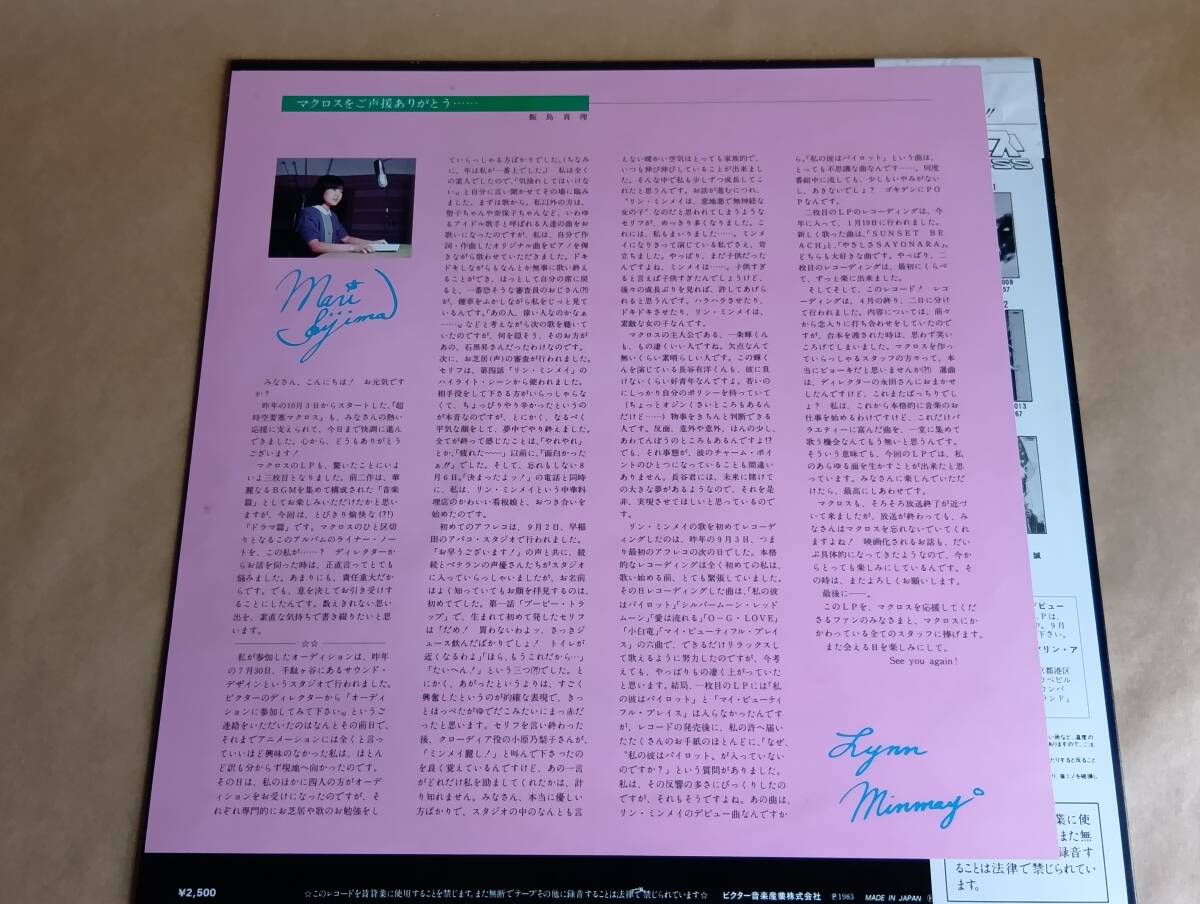 マクロスをご声援ありがとう……
飯島真理
Mari Iijima
みなさん、こんにちは！　お元気です
か？
昨年の10月3日からスタートした、「超
時空要塞マクロス」も、みなさんの熱い
応援に支えられて、今日まで快調に進ん
できました。心から、どうもありがとう
ございます！
マクロスのLPも、驚いたことにいよ
いよ三枚目となりました。前二作は、華
麗なるBGMを集めて構成された「音楽
篇」としてお楽しみいただけたかと思い
ますが、今回は、とびきり愉快な(?!)
「ドラマ篇」です。マクロスのひと区切
りとなるこのアルバムのライナー・ノー
トを、この私が……？　ディレクターか
らお話を伺った時は、正直言ってとても
悩みました。あまりにも、責任重大だか
らです。でも、意を決してお引き受けす
ることにしたんです。数えきれない思い
出を、素直な気持ちで書き綴りたいと思
います。
☆☆
私が参加したオーディションは、昨年
の7月30日、千駄ヶ谷にあるサウンド・
デザインというスタジオで行われました。
ビクターのディレクターから「オーディ
ションに参加してみて下さい」というご
連絡をいただいたのはなんとその前日で、
それまでアニメーションには全くと言っ
ていいほど興味のなかった私は、ほとん
ど訳も分からず現地へ向かったのです。
その日は、私のほかに四人の方がオーデ
ィションをお受けになったのですが、そ
れぞれ専門的にお芝居や歌のお勉強をし
ていらっしゃる方ばかりでした。(ちなみ
に、年は私が一番上でした。)　私は全く
の素人でしたので、「気後れしてはいけな
い」と自分に言い聞かせてその場に臨み
ました。まずは歌から。私以外の方は、
聖子ちゃんや奈保子ちゃんなど、いわゆ
るアイドル歌手と呼ばれる人達の曲をお
歌いになったのですが、私は、自分で作
詞・作曲したオリジナル曲をピアノを弾
きながら歌わせていただきました。ドキ
ドキしながらもなんとか無事に歌い終え
ることができ、ほっとして自分の席に戻
ると、一番恐そうな審査員のおじさん(?!)
が、煙草をふかしながら私をじっと見て
いるんです。「あの人、偉い人なのかなぁ
……」などと考えながら次の歌を聴いて
いたのですが、何を隠そう、そのお方が
あの、石黒昇さんだったわけなのです。
次に、お芝居(声)の審査が行われました。
セリフは、第四話「リン・ミンメイ」の
ハイライト・シーンから使われました。
相手役をして下さる方がいらっしゃらな
くて、ちょっぴりやり辛かったというの
が本音なのですが、とにかく、なるべく
平気な顔をして、夢中でやり終えました。
全てが終って感じたことは、「やれやれ」
とか、「疲れた……」以前に、「面白かった
ぁ!!」でした。そして、忘れもしない8
月6日。「決まったよッ！」の電話と同時
に、私は、リン・ミンメイという中華料
理店のかわいい看板娘と、おつき合いを
始めたのです。
初めてのアフレコは、9月2日、早稲
田のアバコ・スタジオで行われました。
「お早うございます！」の声と共に、続
続とベテランの声優さんたちがスタジオ
に入っていらっしゃいましたが、お名前
はよく知っていてもお顔を拝見するのは、
初めてでした。第一話「ブービー・トラ
ップ」で、生まれて初めて発したセリフ
は「だめ！　買わないわよッ、さっきジ
ュース飲んだばかりでしょ！　トイレが
近くなるわよ」「ほら、もうこれだから…」
「たいへん！」という三つ(?!)でした。と
にかく、あがったというよりは、すごく
興奮したというのが的確な表現で、きっ
とほっぺたがゆでだこみたいにまっ赤だ
ったと思います。セリフを言い終わった
後、クローディア役の小原乃梨子さんが、
「ミンメイ麗し！」と叫んで下さったの
を良く覚えているんですけど、あの一言
がどれだけ私を励ましてくれたかは、計
り知れません。みなさん、本当に優しい
方ばかりで、スタジオの中のなんとも言
えない暖かい空気はとっても家族的で、
いつも伸び伸びしていることが出来まし
た。そんな中で私も少しずつ成長してこ
れたと思うんです。お話が進むにつれ、
“リン・ミンメイは、意地悪で無神経な
女の子”なのだと思われてしまうような
セリフが、めっきり多くなりました。こ
れには、私もまいりました……。ミンメ
イになりきって演じている私でさえ、苛
立ちました。やっぱり、まだ子供だった
んですよね、ミンメイは……。子供すぎ
ると言えば子供すぎたんでしょうけど、
後々の成長ぶりを見れば、許してあげら
れると思うんです。ハラハラさせたり、
ドキドキさせたり、リン・ミンメイは、
素敵な女の子なんです。
マクロスの主人公である、一条輝くん
も、もの凄くいい人ですね。欠点なんて
無いくらい素晴らしい人です。この輝く
んを演じている長谷有洋くんも、彼に負
けないくらい好青年なんですよ。若いの
にしっかり自分のポリシーを持っていて
(ちょっとオジンくさいところもあるん
だけど……)物事をきちんと判断できる
人です。反面、意外や意外、ほんの少し、
あわてんぼうのところもあるんですよ!?
でも、それ事態が、彼のチャーム・ポイ
ントのひとつになっていることも間違い
ありません。長谷君には、未来に賭けて
の大きな夢があるようなので、それを是
非、実現させてほしいと思っているので
す。
リン・ミンメイの歌を初めてレコーデ
ィングしたのは、昨年の9月3日、つま
り最初のアフレコの次の日でした。本格
的なレコーディングは全く初めての私は、
歌い始める前、とても緊張していました。
その日レコーディングした曲は、「私の彼
はパイロット」「シルバームーン・レッド
ムーン」「愛は流れる」「O－G・LOVE」
「小白竜」「マイ・ビューティフル・プレイ
ス」の六曲で、できるだけリラックスし
て歌えるように努力したのですが、今考
えても、やっぱりもの凄く上がっていた
と思います。結局、一枚目のLPには「私
の彼はパイロット」と「マイ・ビューティ
フル・プレイス」は入らなかったんです
が、レコードの発売後に、私の許へ届い
たたくさんのお手紙のほとんどに、「なぜ、
“私の彼はパイロット”が入っていない
のですか？」という質問がありました。
私は、その反響の多さにびっくりしたの
ですが、それもそうですよね。あの曲は、
リン・ミンメイのデビュー曲なんですか
ら。「私の彼はパイロット」という曲は、
とっても不思議な曲なんです……。何度
番組中に流しても、少しもいやみがない
し、あきないでしょ？　ゴキゲンにPO
Pなんです。
二枚目のLPのレコーディングは、今
年に入って、1月19日に行われました。
新しく歌った曲は、「SUNSET BE
ACH」と、「やさしさSAYONARA」。
どちらも大好きな曲です。やっぱり、二
枚目のレコーディングは、最初にくらべ
て、ずっと楽に出来ました。
そしてそして、このレコード！　レコ
ーディングは、4月の終り、二日に分け
て行われました。内容については、前々
から念入りに打ち合わせをしていたので
すが、台本を渡された時は、思わず笑い
ころげてしまいました。マクロスを作っ
ていらっしゃるスタッフの方々って、本
当にビョーキだと思いませんか(?!)　選曲
は、ディレクターの永田さんにおまかせ
したんですけど、これまたばっちりでし
ょ？　私は、これから本格的に音楽のお
仕事を始めるわけですけど、これだけバ
ラエティーに富んだ曲を、一堂に集めて
歌う機会なんてもう無いと思うんです。
そういう意味でも、今回のLPでは、私
のあらゆる面を生かすことが出来たと思
っています。みなさんに楽しんでいただ
けたら、最高にしあわせです。
マクロスも、そろそろ放送終了が近づ
いて来ましたが、放送が終わっても、み
なさんはマクロスを忘れないでいてくれ
ますよね！　映画化されるお話も、だい
ぶ具体的になってきたようなので、今か
らとっても楽しみにしているんです。そ
の時は、またよろしくお願いします。
最後に——。
このLPを、マクロスを応援してくだ
さるファンのみなさまと、マクロスにか
かわっている全てのスタッフに捧げます。
また会える日を楽しみにして。
See you again！
Lynn
Minmay
¥2,500
☆このレコードを賃貸業に使用することを禁じます。また無断でテープその他に録音することは法律で禁じられています☆
ビクター音楽産業株式会社
Ⓟ1983
MADE IN JAPAN
業に使
また無
録音す
ることは法律で禁じられてい
ます。